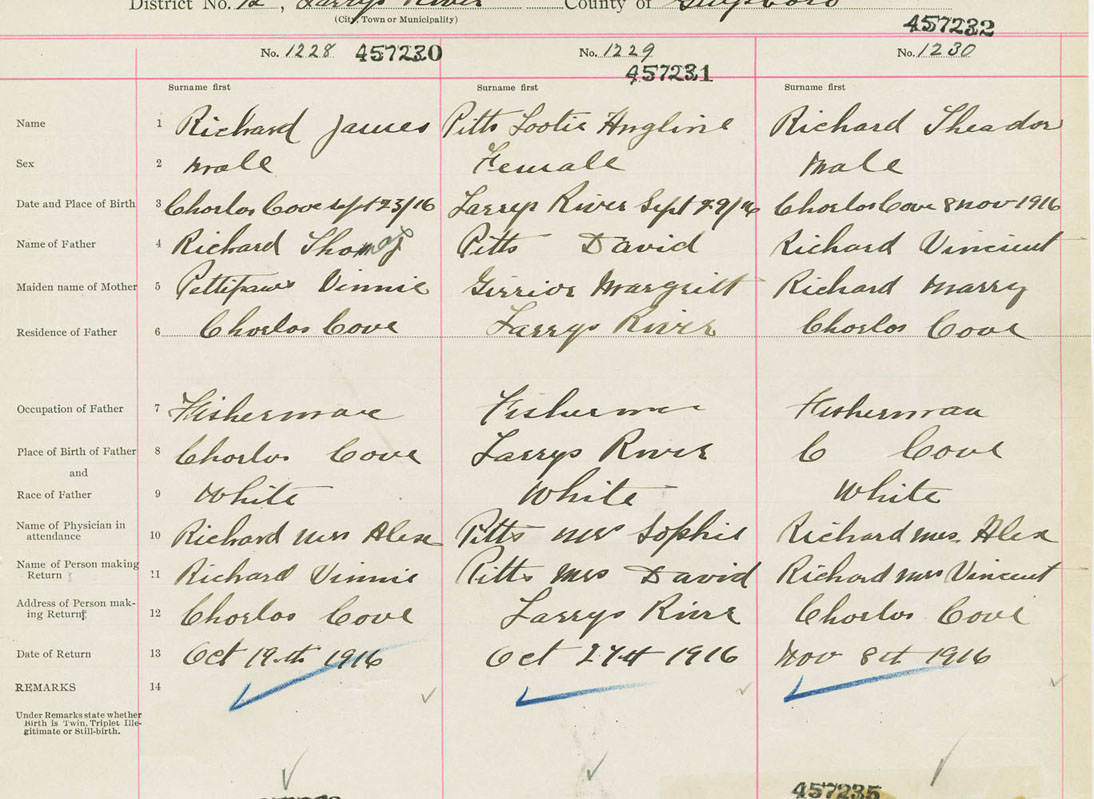 District No. 12, Larrys River County of Guysboro
(City, Town or Municipality)
457232
No. 1228 457230 No. 1229 No. 1230
457231
Surname first Surname first Surname first
Name 1 Richard James Pitts Lootie Angline Richard Theador
Sex 2 male Female Male
Date and Place of Birth 3 Chorlos Cove Sept 23/16 Larrys River Sept 29/16 Chorlos Cove 8 Nov 1916
Name of Father 4 Richard Thomas Pitts David Richard Vincient
Maiden name of Mother 5 Pettipaws Vinnie Margritt Richard Marry
Residence of Father 6 Chorlos Cove Larrys River Chorlos Cove
Occupation of Father 7 Fisherman Fisherman Fisherman
Place of Birth of Father 8 Chorlos Cove Larrys River C Cove
and
Race of Father 9 White White White
Name of Physician in
attendance 10 Richard Mrs Alex Pitts Mrs Sophie Richard Mrs. Alex
Name of Person making
Return 11 Richard Vinnie Pitts Mrs David Richard Mrs Vincent
Address of Person mak-
ing Return 12 Chorlos Cove Larrys River Chorlos Cove
Date of Return 13 Oct 19th 1916 Oct 27th 1916 Nov 8th 1916
REMARKS 14
Under Remarks state whether
Birth is Twin, Triplet Ille-
gitimate or Still-birth.
457235